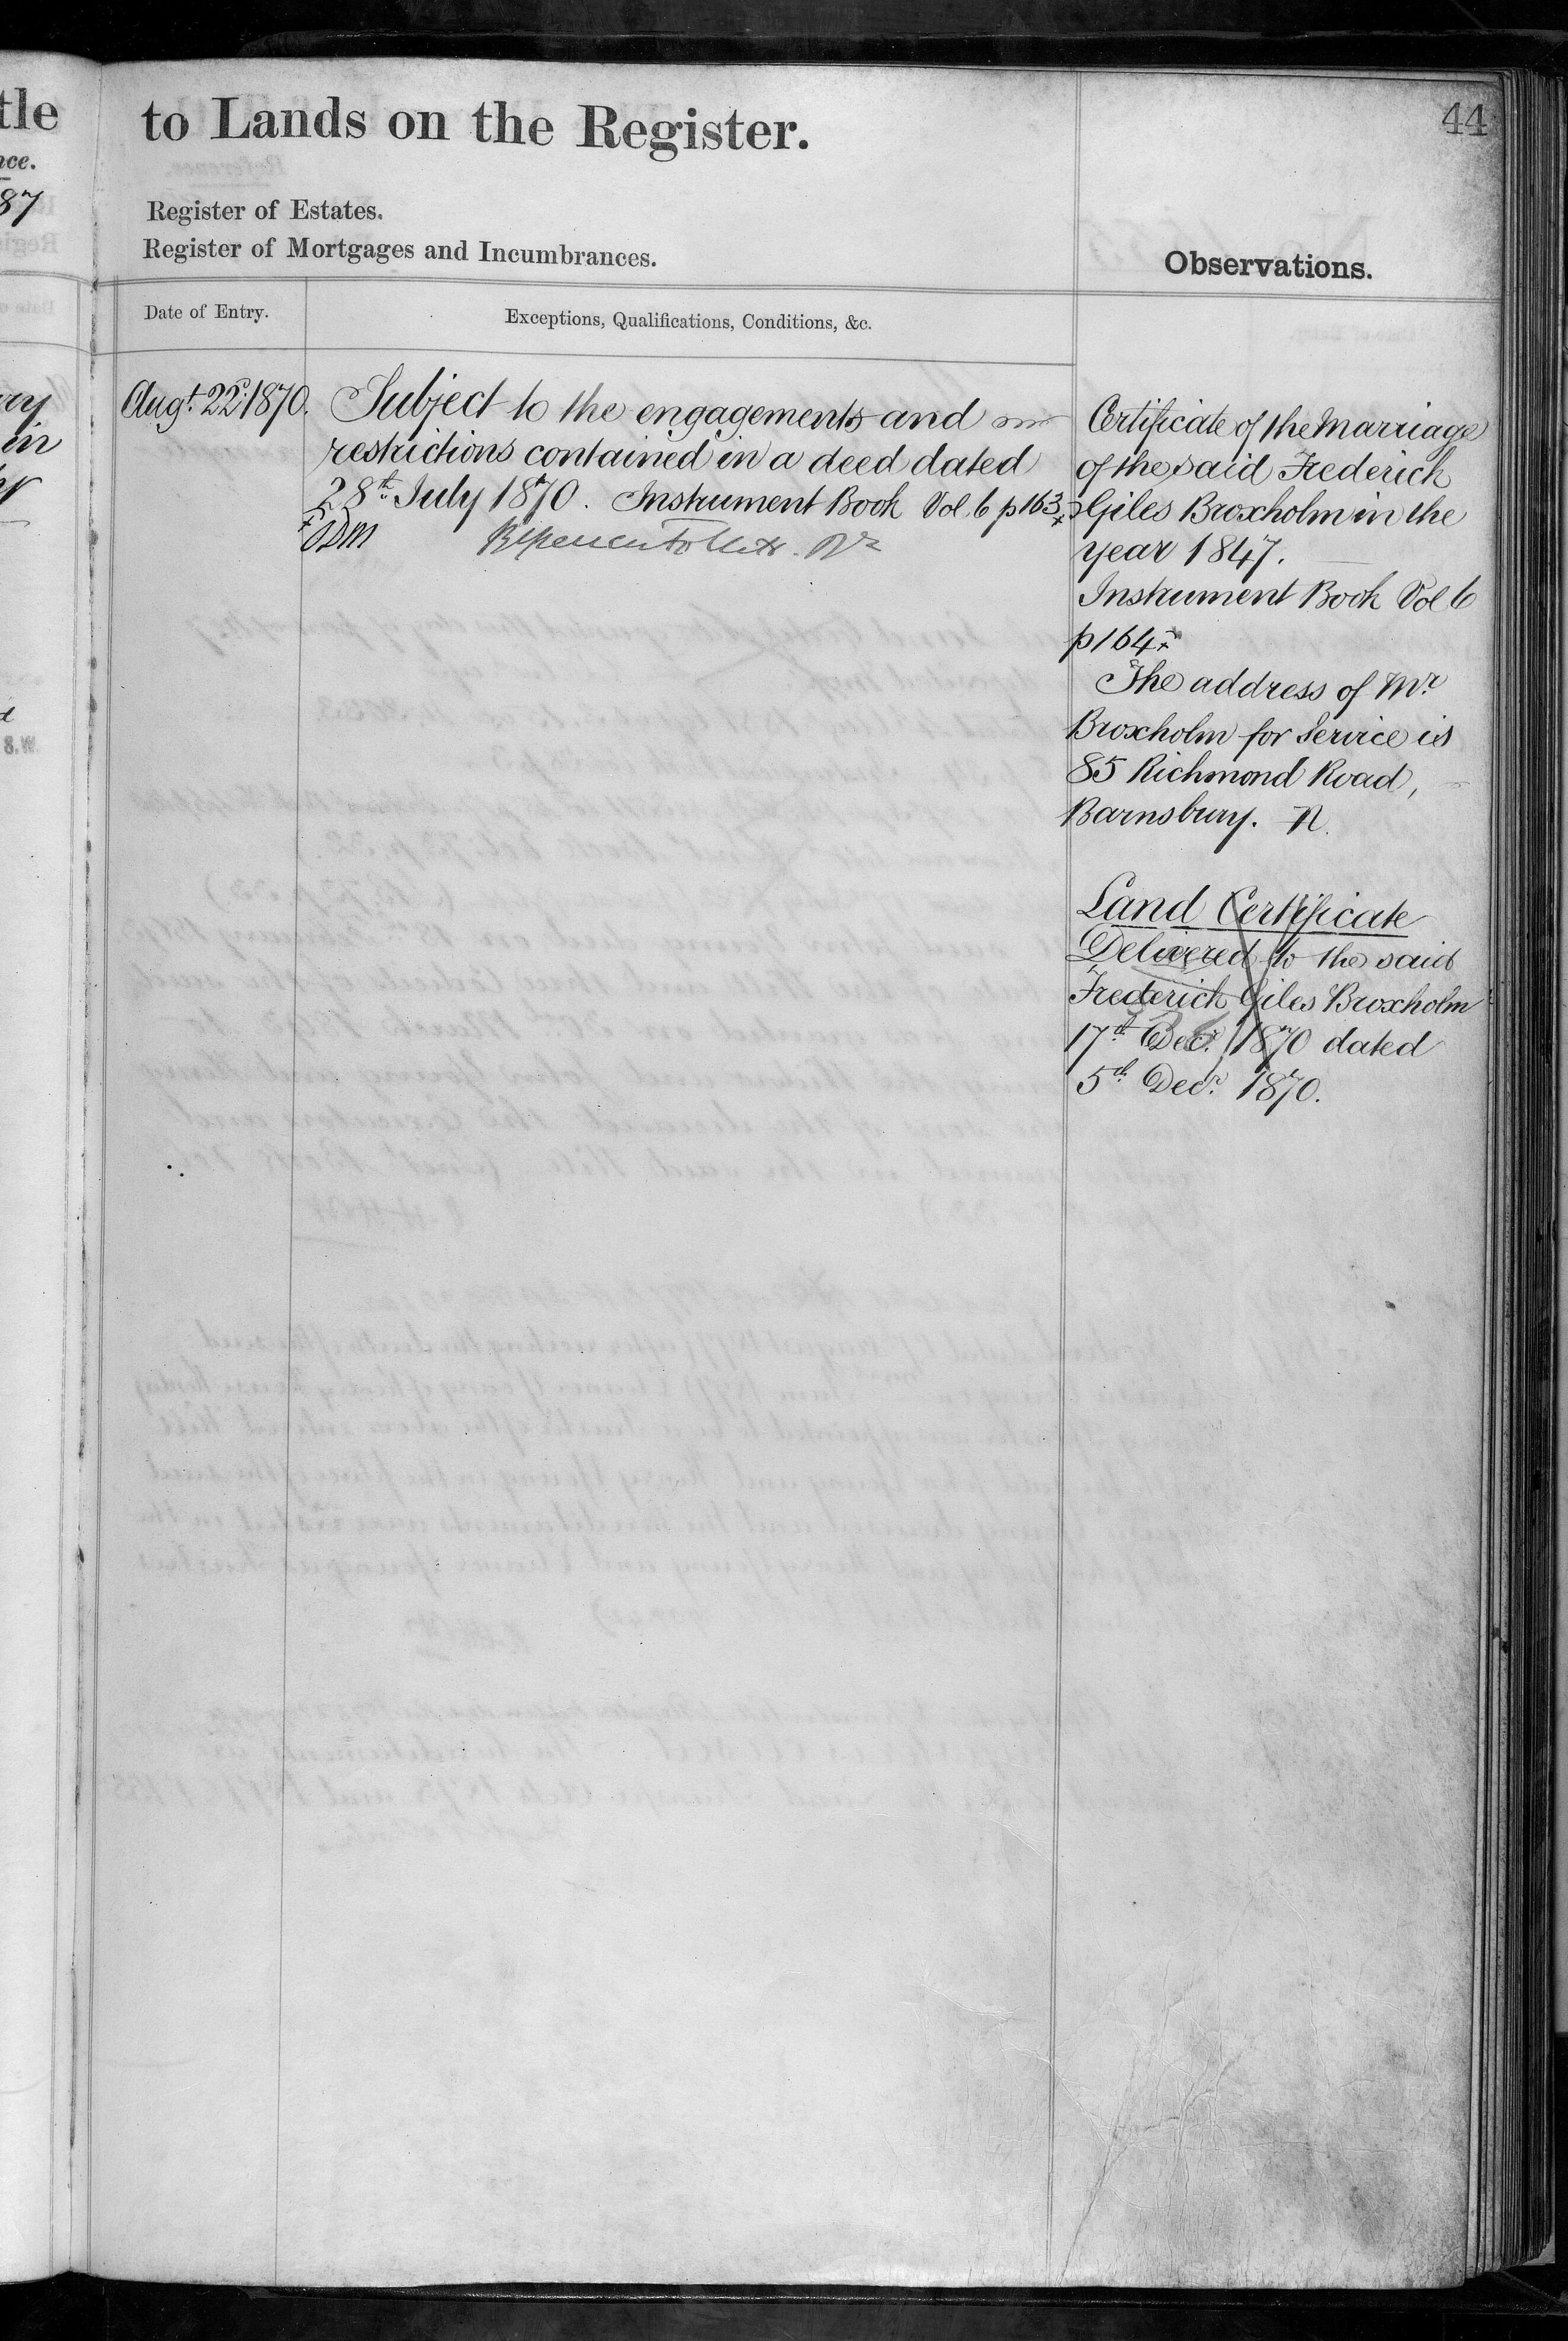 tle
nce.
87
in
S.W.
to Lands on the Register.
44
Register of Estates.
Register of Mortgages and Incumbrances.
Observations.
Date of Entry.
Exceptions, Qualifications, Conditions, &c.
Augt. 22d. 1870.
Subject to the engagements and
restrictions contained in a deed dated
28th. July 1870. Instrument Book Vol 6 p 163
Certificate of the Marriage
of the said Frederich
Giles Broxholm in the
year 1847.
Instrument Book Vol 6
p 164
The address of Mr.
Broxholm for Service is
85 Richmond Road,
Barnsbury. N.
Land Certificate
Delivered to the said
Frederich Giles Broxholm
17th Decr. 1870 dated
5th Decr. 1870.